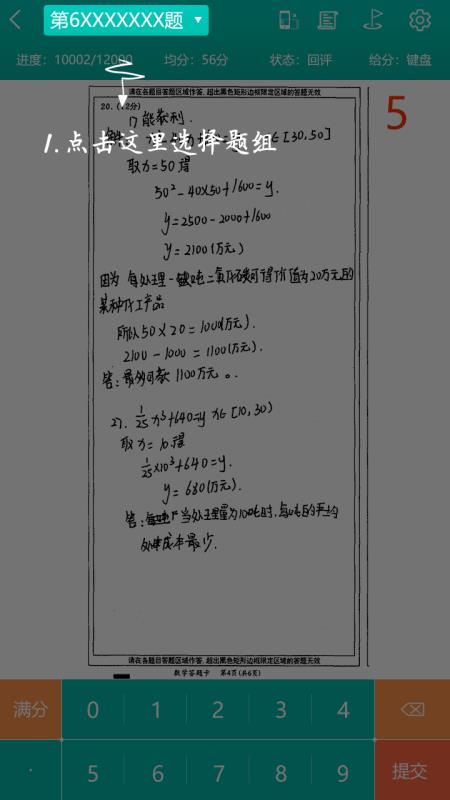 第6XXXXXXX题
进度：10002/12000 均分：56分 状态：回评 给分：键盘
请在各题目答题区域作答，超出黑色矩形边框限定区域的答题无效
20.（12分）
5
1.点击这里选择题组
能获利.
∈[30,50]
取x=50得
50²-40×50+1600=y.
y=2500-2000+1600
y=2100(万元)
因为 每处理一吨二氧化碳可得价值为20万元的
某种化工产品
所以50×20=1000(万元).
2100-1000=1100(万元).
答：最多可获1100万元。
2). 1/25 x³+640=y x∈[10,30)
取x=10得
1/25×10³+640=y.
y=680(万元).
答：当处理量为10吨时，每吨的平均
处理成本最少.
请在各题目答题区域作答，超出黑色矩形边框限定区域的答题无效
数学答题卡 第4页(共6页)
满分 0 1 2 3 4
· 5 6 7 8 9 提交